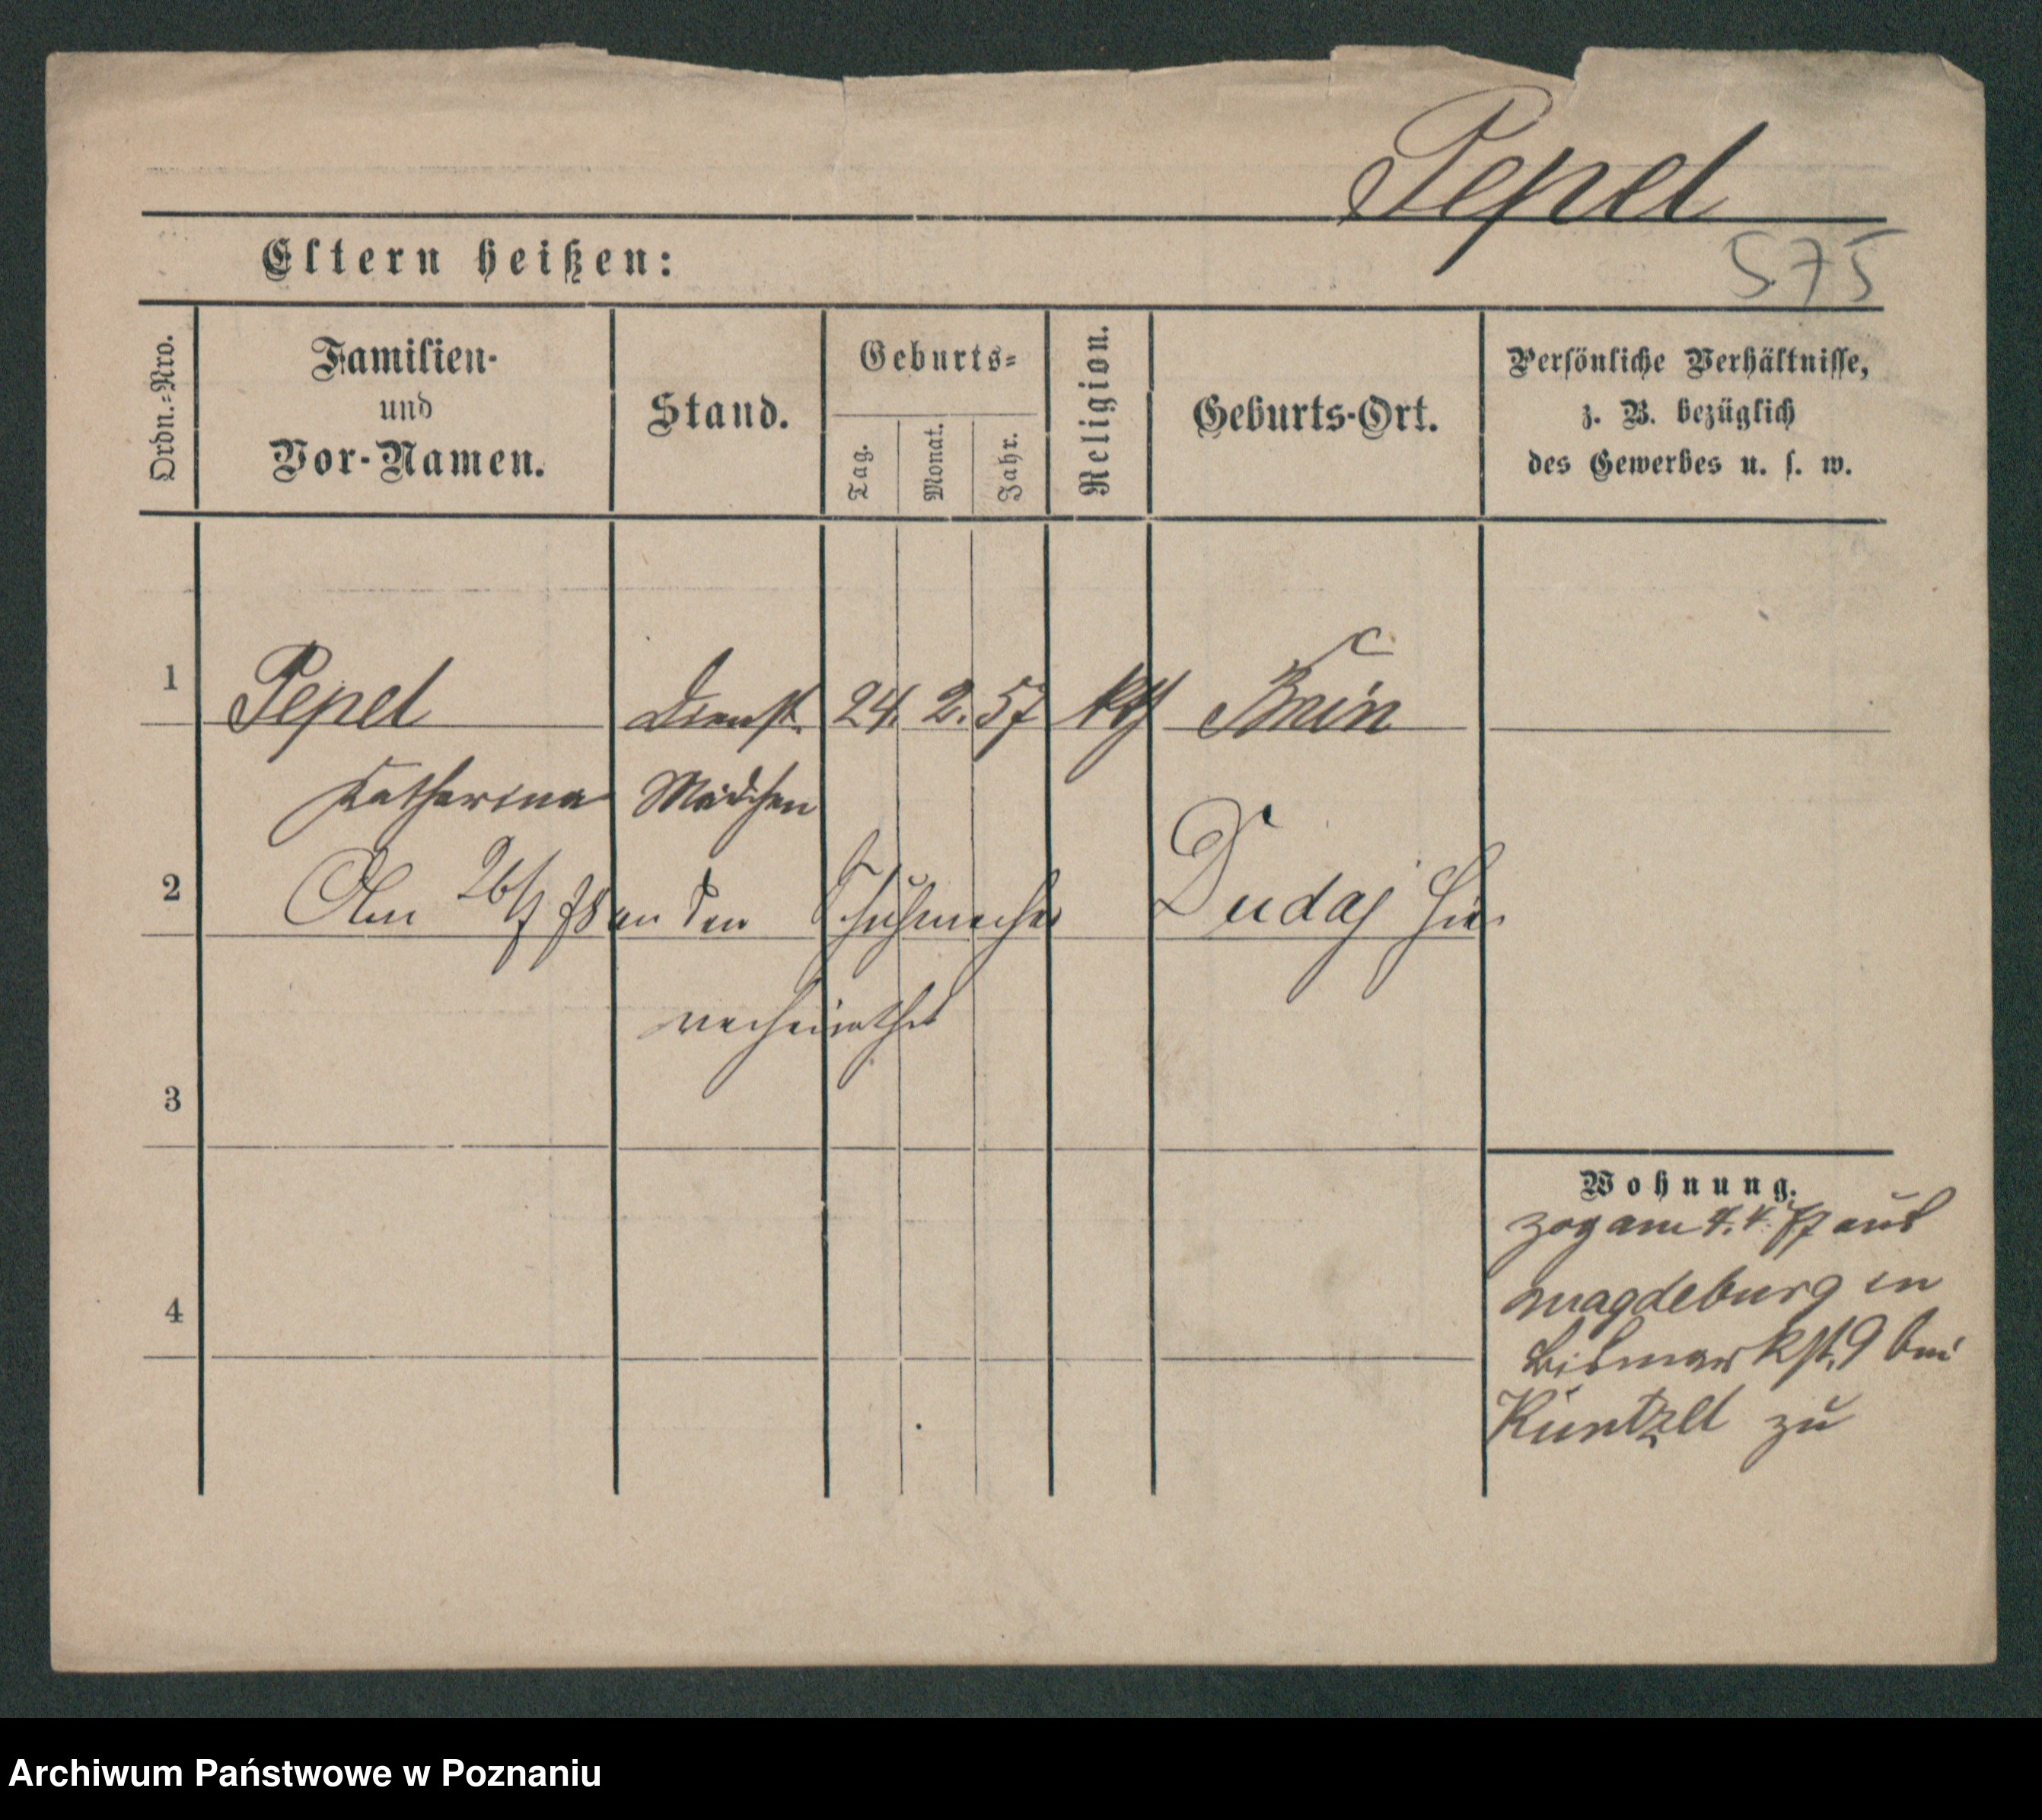 Pepel
575
Eltern heißen:
Ordn.-Nro.
Familien-
und
Vor-Namen.
Stand.
Geburts-
Tag.
Monat.
Jahr.
Religion.
Geburts-Ort.
Persönliche Verhältnisse,
z. B. bezüglich
des Gewerbes u. s. w.
1 Pepel Dienst 24. 2. 57 kth Bnin
Katharina Mädchen
2 Am 26/7 78 an den Schuhmacher Dudaj hier
verheirathet
3
Wohnung.
zog am 4. 4. 77 aus
Magdeburg in
4
Bismarkst. 9 bei
Kuntzel zu
Archiwum Państwowe w Poznaniu